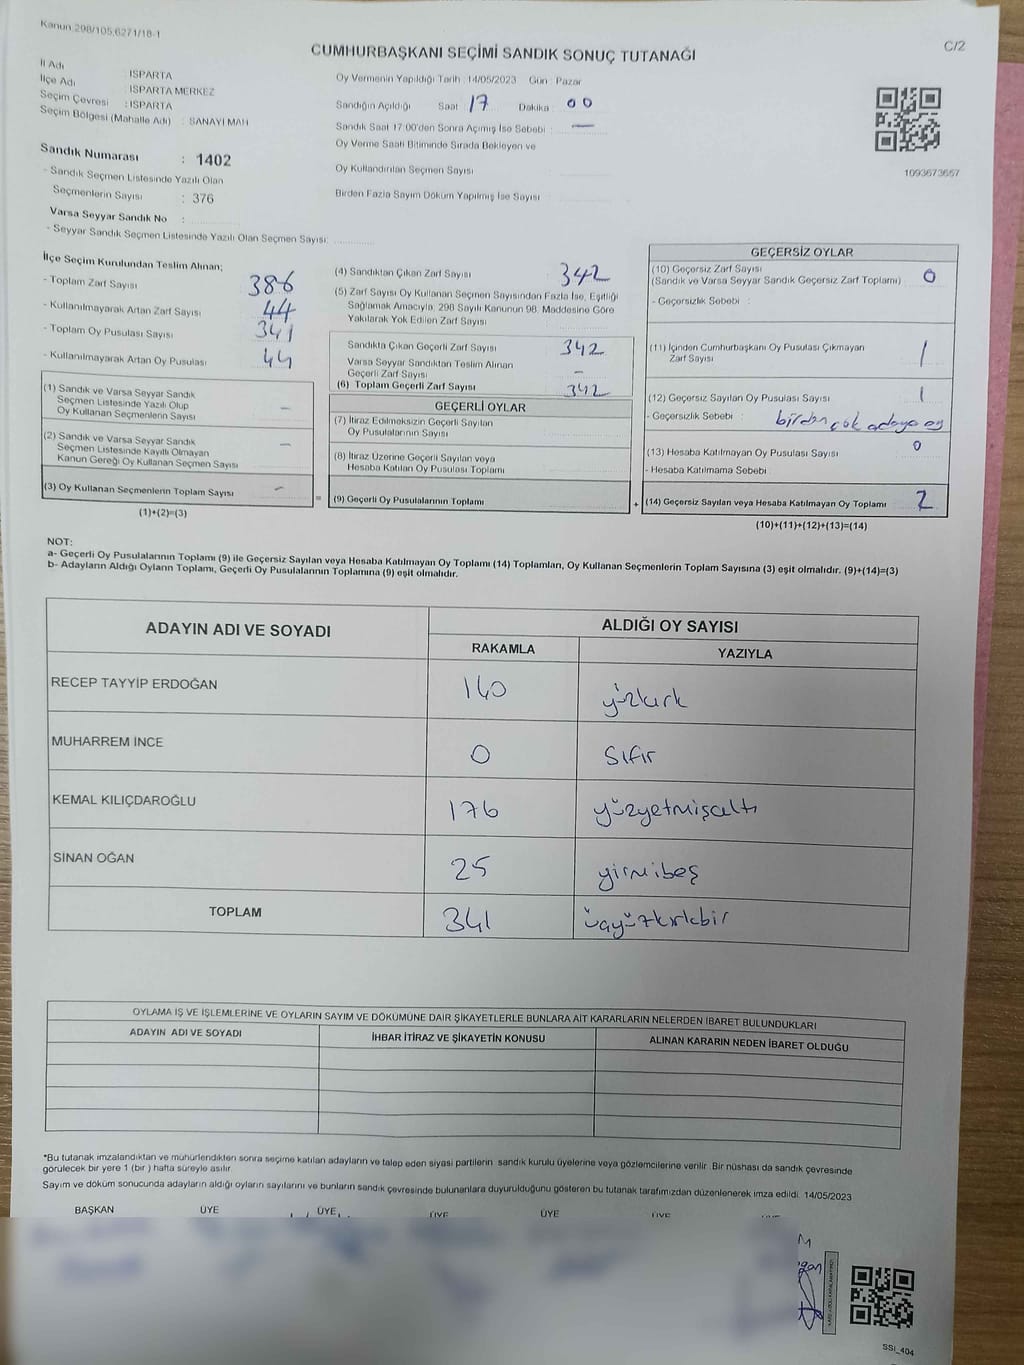 Kanun 298/105,6271/18-1
C/2
CUMHURBAŞKANI SEÇİMİ SANDIK SONUÇ TUTANAĞI
İl Adı : ISPARTA
İlçe Adı : ISPARTA MERKEZ
Seçim Çevresi : ISPARTA
Seçim Bölgesi (Mahalle Adı) : SANAYİ MAH
Sandık Numarası : 1402
- Sandık Seçmen Listesinde Yazılı Olan
Seçmenlerin Sayısı : 376
Varsa Seyyar Sandık No :
- Seyyar Sandık Seçmen Listesinde Yazılı Olan Seçmen Sayısı:
Oy Vermenin Yapıldığı Tarih : 14/05/2023 Gün : Pazar
Sandığın Açıldığı Saat : 17 Dakika : 00
Sandık Saat 17:00'den Sonra Açımış İse Sebebi : —
Oy Verme Saati Bitiminde Sırada Bekleyen ve
Oy Kullandırılan Seçmen Sayısı
Birden Fazla Sayım Döküm Yapılmış İse Sayısı
1093673667
İlçe Seçim Kurulundan Teslim Alınan;
- Toplam Zarf Sayısı 386
- Kullanılmayarak Artan Zarf Sayısı 44
- Toplam Oy Pusulası Sayısı 341
- Kullanılmayarak Artan Oy Pusulası 44
(1) Sandık ve Varsa Seyyar Sandık
Seçmen Listesinde Yazılı Olup
Oy Kullanan Seçmenlerin Sayısı –
(2) Sandık ve Varsa Seyyar Sandık
Seçmen Listesinde Kayıtlı Olmayan
Kanun Gereği Oy Kullanan Seçmen Sayısı –
(3) Oy Kullanan Seçmenlerin Toplam Sayısı –
(1)+(2)=(3)
(4) Sandıktan Çıkan Zarf Sayısı 342
(5) Zarf Sayısı Oy Kullanan Seçmen Sayısından Fazla İse, Eşitliği
Sağlamak Amacıyla, 298 Sayılı Kanunun 98. Maddesine Göre
Yakılarak Yok Edilen Zarf Sayısı
Sandıkta Çıkan Geçerli Zarf Sayısı 342
Varsa Seyyar Sandıktan Teslim Alınan
Geçerli Zarf Sayısı –
(6) Toplam Geçerli Zarf Sayısı 342
GEÇERLİ OYLAR
(7) İtiraz Edilmeksizin Geçerli Sayılan
Oy Pusulalarının Sayısı
(8) İtiraz Üzerine Geçerli Sayılan veya
Hesaba Katılan Oy Pusulası Toplamı
= (9) Geçerli Oy Pusulalarının Toplamı
GEÇERSİZ OYLAR
(10) Geçersiz Zarf Sayısı
(Sandık ve Varsa Seyyar Sandık Geçersiz Zarf Toplamı) 0
- Geçersizlik Sebebi :
(11) İçinden Cumhurbaşkanı Oy Pusulası Çıkmayan
Zarf Sayısı 1
(12) Geçersiz Sayılan Oy Pusulası Sayısı 1
- Geçersizlik Sebebi : birden çok adaya oy
(13) Hesaba Katılmayan Oy Pusulası Sayısı 0
- Hesaba Katılmama Sebebi
+ (14) Geçersiz Sayılan veya Hesaba Katılmayan Oy Toplamı 2
(10)+(11)+(12)+(13)=(14)
NOT:
a- Geçerli Oy Pusulalarının Toplamı (9) ile Geçersiz Sayılan veya Hesaba Katılmayan Oy Toplamı (14) Toplamları, Oy Kullanan Seçmenlerin Toplam Sayısına (3) eşit olmalıdır. (9)+(14)=(3)
b- Adayların Aldığı Oyların Toplamı, Geçerli Oy Pusulalarının Toplamına (9) eşit olmalıdır.
ADAYIN ADI VE SOYADI
ALDIĞI OY SAYISI
RAKAMLA YAZIYLA
RECEP TAYYİP ERDOĞAN 140 yüzkırk
MUHARREM İNCE 0 Sıfır
KEMAL KILIÇDAROĞLU 176 yüzyetmişaltı
SİNAN OĞAN 25 yirmibeş
TOPLAM 341 üçyüzkırkbir
OYLAMA İŞ VE İŞLEMLERİNE VE OYLARIN SAYIM VE DÖKÜMÜNE DAİR ŞİKAYETLERLE BUNLARA AİT KARARLARIN NELERDEN İBARET BULUNDUKLARI
ADAYIN ADI VE SOYADI İHBAR İTİRAZ VE ŞİKAYETİN KONUSU ALINAN KARARIN NEDEN İBARET OLDUĞU
*Bu tutanak imzalandıktan ve mühürlendikten sonra seçime katılan adayların ve talep eden siyasi partilerin sandık kurulu üyelerine veya gözlemcilerine verilir. Bir nüshası da sandık çevresinde
görülecek bir yere 1 (bir ) hafta süreyle asılır.
Sayım ve döküm sonucunda adayların aldığı oyların sayılarını ve bunların sandık çevresinde bulunanlara duyurulduğunu gösteren bu tutanak tarafımızdan düzenlenerek imza edildi. 14/05/2023
BAŞKAN ÜYE ÜYE ÜYE ÜYE ÜYE
SSİ_404